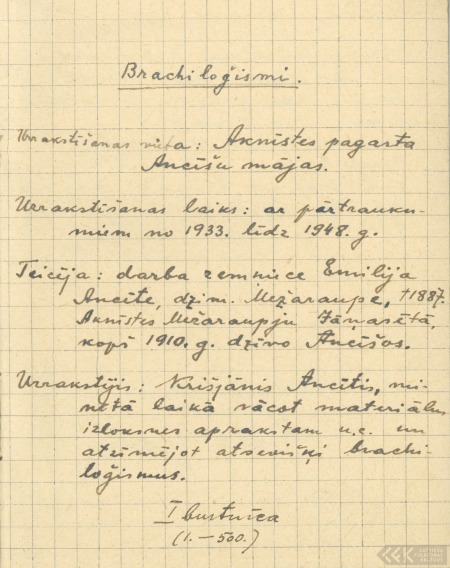 Brachiloģismi.
Uzrakstīšanas vieta: Aknīstes pagasta
Ancīšu mājas.
Uzrakstīšanas laiks: ar pārtrauku-
miem no 1933. līdz 1948. g.
Teicēja: darba zemniece Emilija
Ancīte, dzim. Mežaraupe, †1887.
Aknīstes Mežaraupju Jāņasētā,
kopš 1910. g. dzīvo Ancīšos.
Uzrakstījis: Krišjānis Ancītis, mi-
nētā laikā vācot materiālus
izloksnes aprakstam u.c. un
atzīmējot atsevišķi brachi-
loģismus.
I burtnīca
(1.—500.)